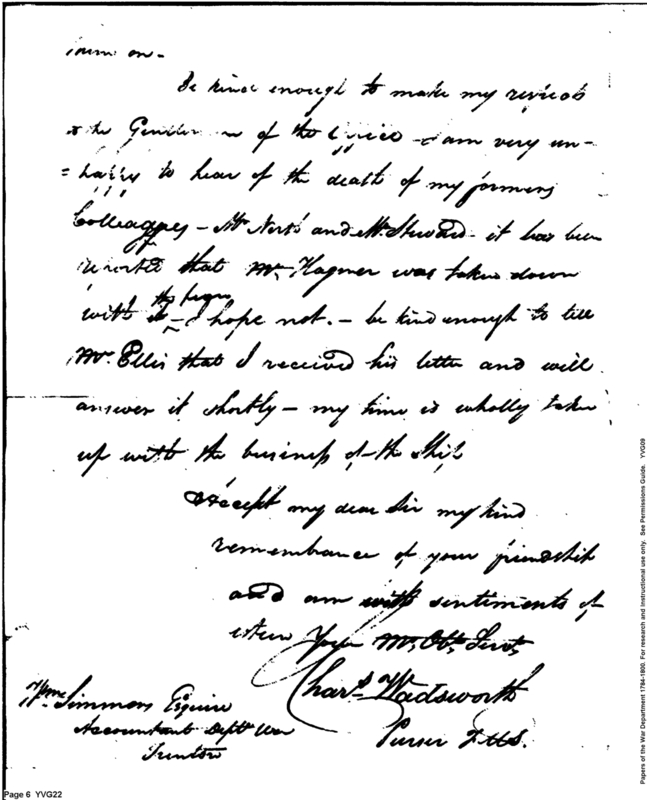 on -
Be kind enough to make my respects
to the Gentlemen of the Office - I am very un-
= happy to hear of the death of my former
Colleagues - Mr. and Mr. Steward - it has been
reported that Mr. Hagner was taken down
with the it - I hope not. - be kind enough to tell
Mr. Ellis that I received his letter and will
answer it shortly - my time is wholly taken
up with the business of the Ship
Accept my dear Sir my kind
remembrance of your friendship
and am with sentiments of
esteem Your Mo. Obt. Servt.
Chars. Wadsworth
Purser
Wm. Simmons Esquire
Accountant Dept War
Trenton
Page 6 YVG22
Papers of the War Department 1784-1800. For research and instructional use only. See Permissions Guide. YVG09